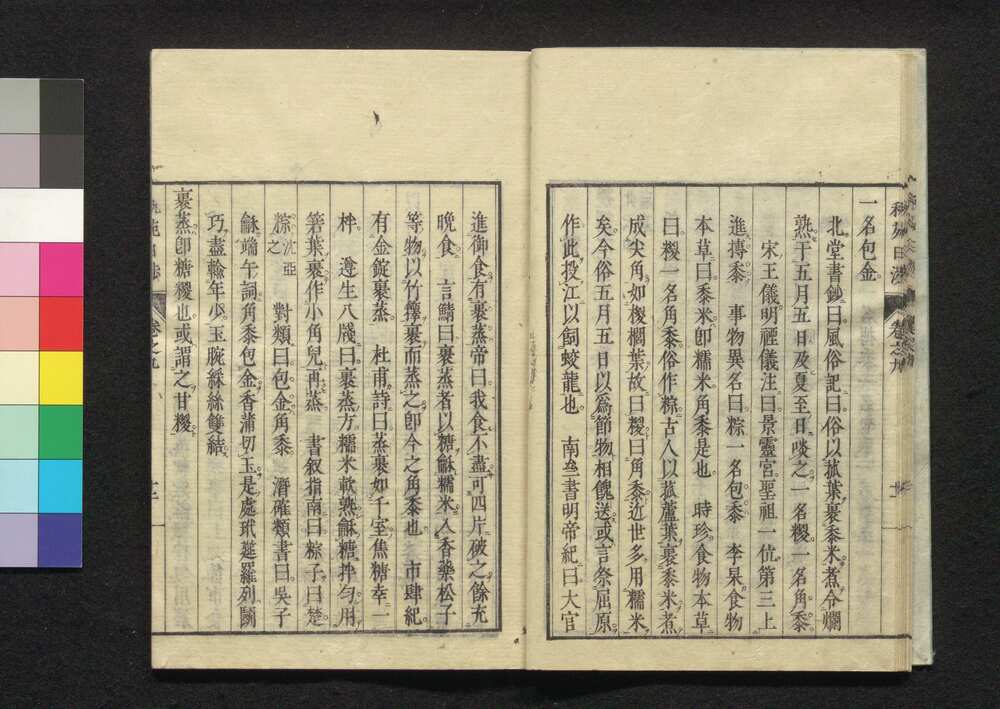 一名包金
北堂書鈔曰風俗記曰俗以菰葉裹黍米煮令爛
熟于五月五日及夏至日啖之一名糉一名角黍
宋王儀明禋儀注曰景靈宮聖祖一位第三上
進摶黍　事物異名曰粽一名包黍　李杲食物
本草曰黍米卽糯米角黍是也　時珍食物本草
曰糉一名角黍俗作粽古人以菰蘆葉裹黍米煮
成尖角如椶櫚葉故曰糉曰角黍近世多用糯米
矣今俗五月五日以爲節物相餽送或言祭屈原
作此投江以飼蛟龍也　南齊書明帝紀曰大官
進御食有裹蒸帝曰我食不盡可四片破之餘充
晩食　言鯖曰裹蒸者以糖龢糯米入香藥松子
等物以竹籜裹而蒸之卽今之角黍也　市肆紀
有金錠裹蒸　杜甫詩曰蒸裹如千室焦糖幸一
柈　遵生八牋曰裹蒸方糯米歕熟龢糖拌匀用
箬葉裹作小角兒再蒸　書叙指南曰粽子曰楚
粽沈亞之　對類曰包金角黍　潛確類書曰吳子
龢端午詞角黍包金香蒲切玉是處玳筵羅列鬭
巧盡輸年少玉腕綵絲雙結
裹蒸卽糖糉也或謂之甘糉
卷之九